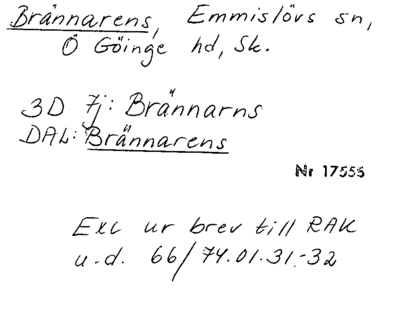 Brännarens, Emmislövs sn,
Ö Göinge hd, Sk.
3D 7j: Brännarns
DAL: Brännarens
Nr 17555
Exc ur brev till RAK
u.d. 66/74.01.31-32